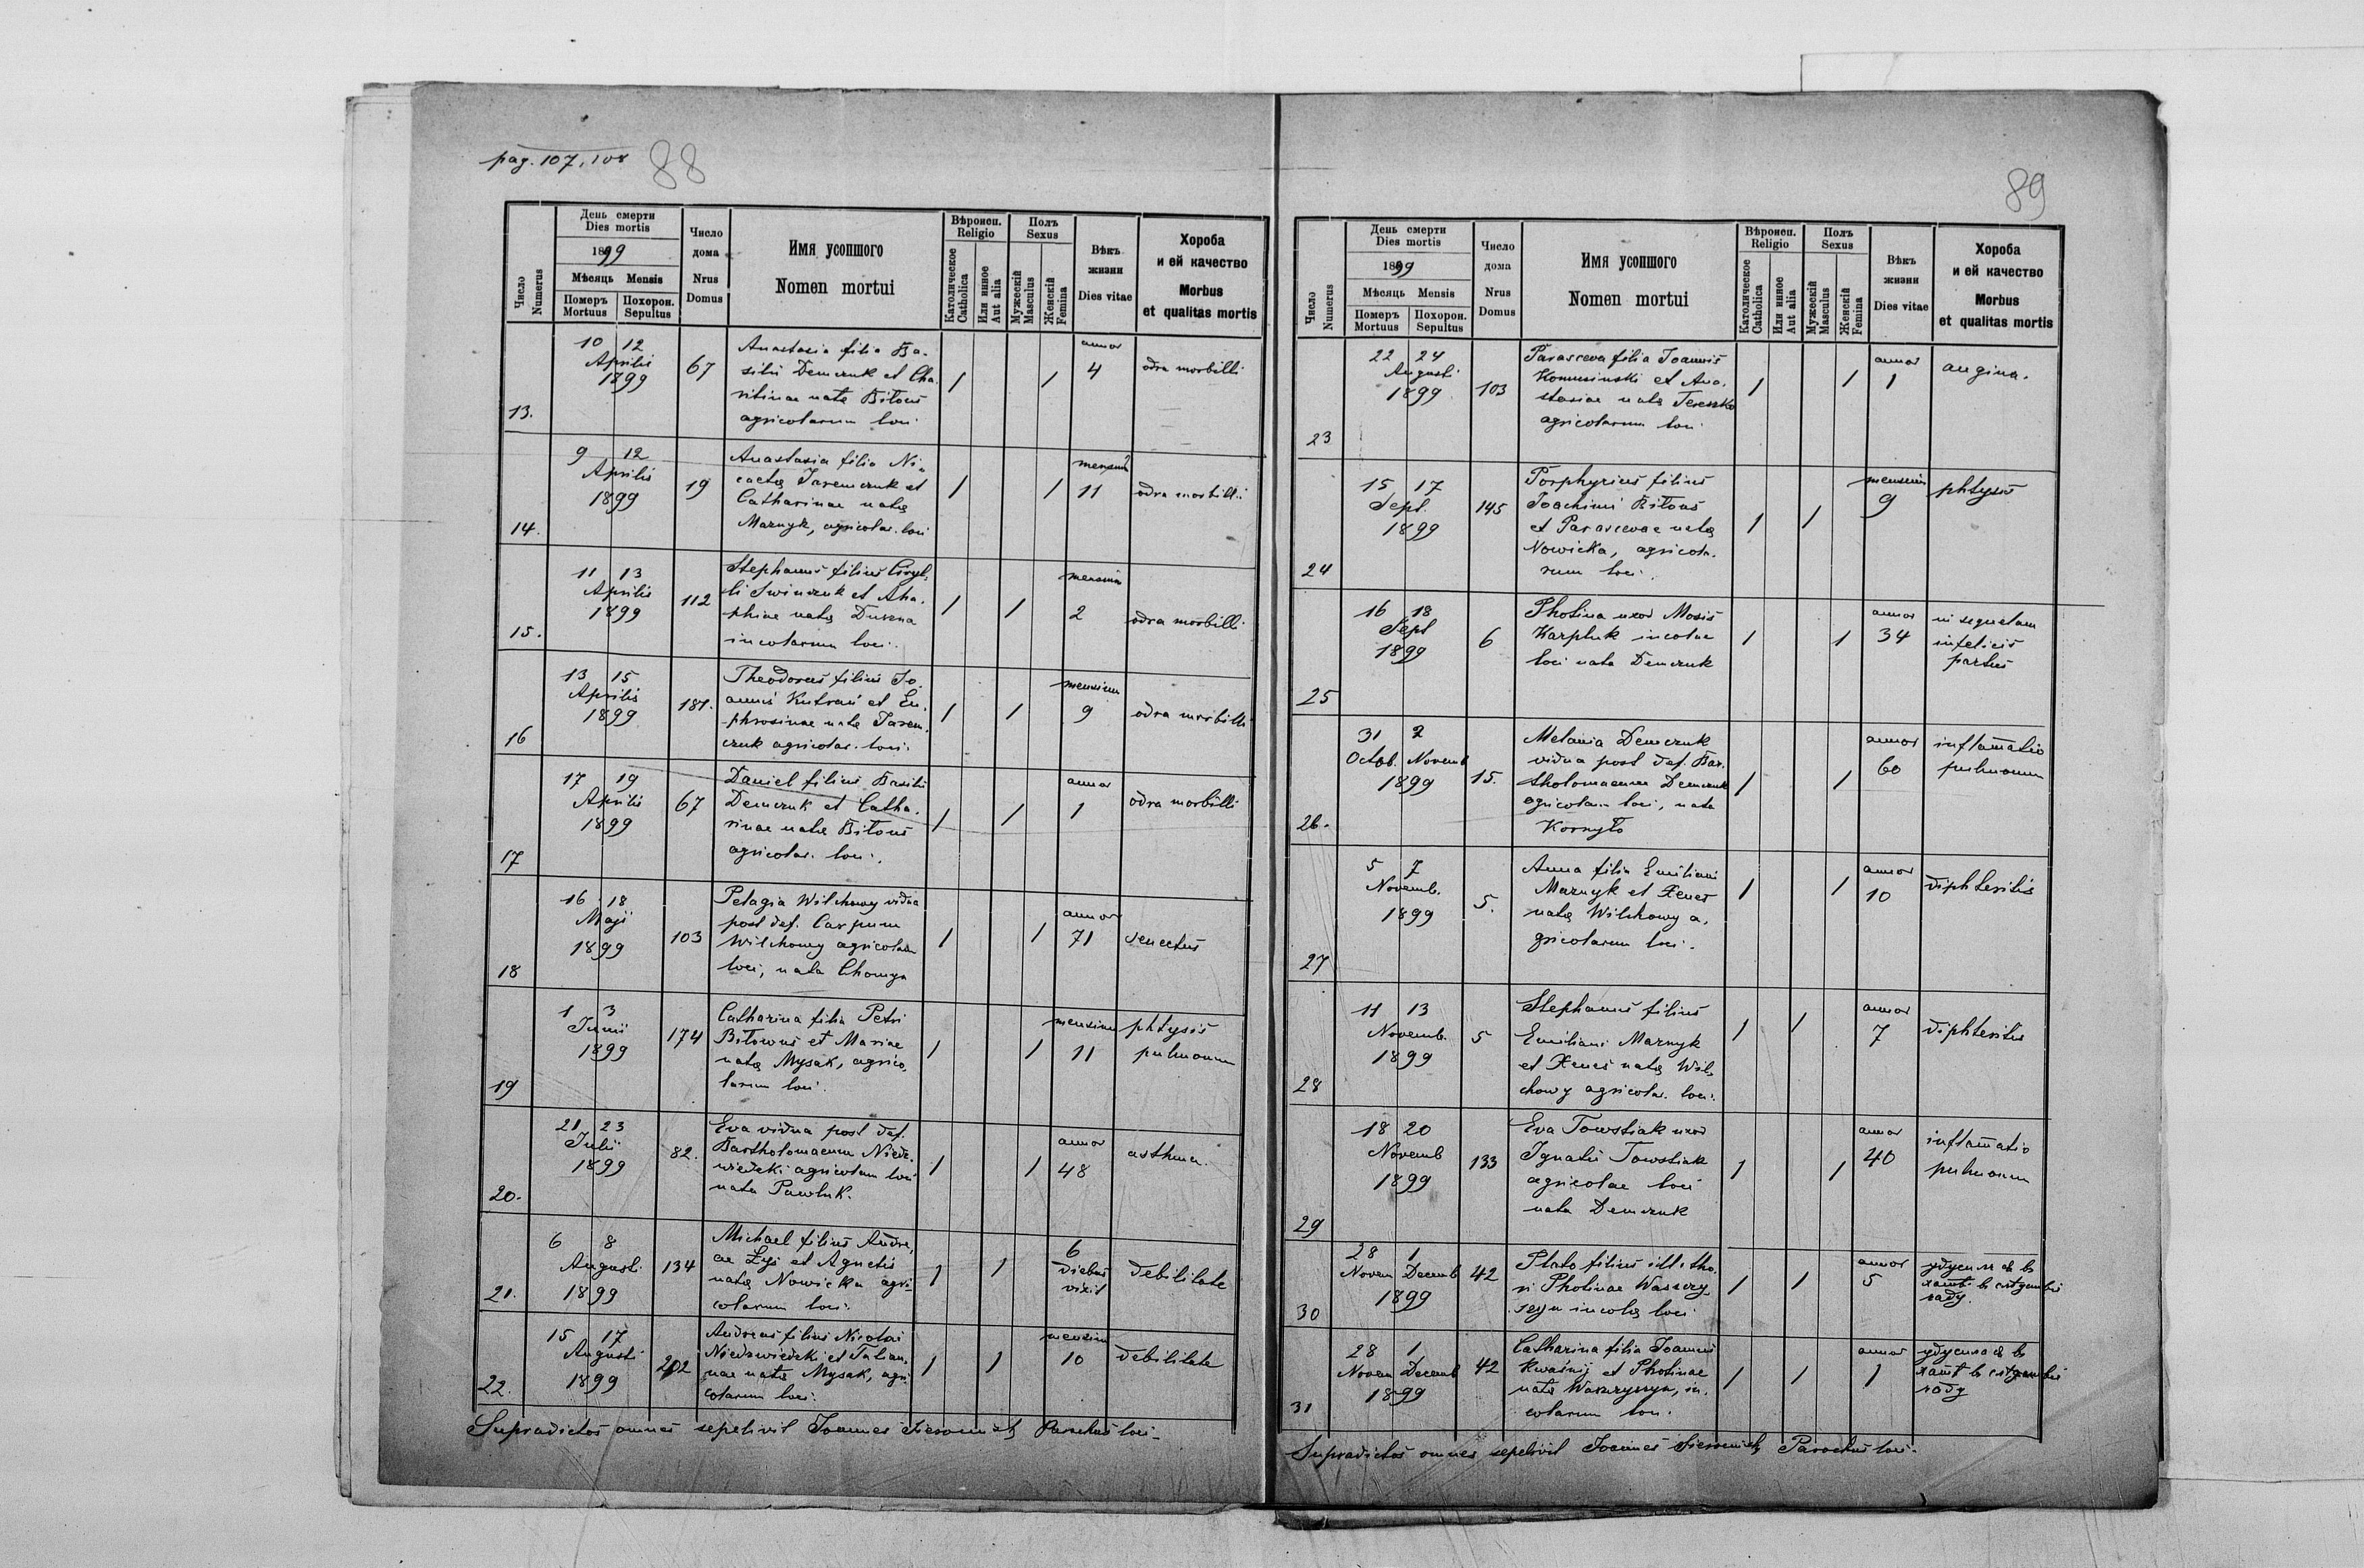 pag. 107, 108
88
Число Numerus
День смерти
Dies mortis
1899
Мѣсяць Mensis
Померъ Mortuus
Похорон. Sepultus
Число дома
Nrus Domus
Имя усопшого
Nomen mortui
Вѣроисп. Religio
Католическое Catholica
Или инное Aut alia
Полъ Sexus
Мужескій Masculus
Женскій Femina
Вѣкъ жизни
Dies vitae
Хороба
и ей качество
Morbus
et qualitas mortis
13.
10 12
Aprilis
1899
67
Anastasia filia Ba-
silii Demczuk et Cha-
ritinae natę Bitous
agricolarum loci
1
1
annor
4
odra morbilli
14.
9 12
Aprilis
1899
19
Anastasia filia Ni-
cactę Jaremczuk et
Catharinae natę
Maznyk, agricolar. loci
1
1
mensium
11
odra morbilli
15.
11 13
Aprilis
1899
112
Stephanus filius Cyryl-
li Swinczuk et Aha-
phiae natę
incolarum loci.
1
1
mensium
2
odra morbilli
16
13 15
Aprilis
1899
181.
Theodorus filius Jo-
annis et Eu-
phrosinae natę Jarem-
czuk agricolar. loci.
1
1
mensium
9
odra morbilli
17
17 19
Aprilis
1899
67
Daniel filius Basilii
Demczuk et Catha-
rinae natę Bitous
agricolar. loci.
1
1
annor
1
odra morbilli
18
16 18
Maji
1899
103
Pelagia Wilchowy vidua
post def. Carpum
Wilchowy agricolam
loci, nata Chomyn
1
1
annor
71
senectus
19
1 3
Junii
1899
174
Catharina filia Petri
Bitowus et Mariae
natę Mysak, agrico-
larum loci.
1
1
mensium
11
phtysis
pulmonum
20.
21 23
Julii
1899
82.
Eva vidua post def.
Bartholomaeum Niedz-
wiedzki agricolam loci
nata Pawluk.
1
1
annor
48
asthma.
21.
6 8
Augusti
1899
134
Michael filius Andre-
ae Łys et Agnetis
natę Nowicka agri-
colarum loci.
1
1
6
diebus
vixit
debilitate
22.
15 17
Augusti
1899
202
Andreas filius Nicolai
Niedzwiedzki et Tatian-
nae natę Mysak, agri-
colarum loci.
1
1
mensium
10
debilitate
Supradictos omnes sepelivit Joannes Parochus loci.
89
Число Numerus
День смерти
Dies mortis
1899
Мѣсяць Mensis
Померъ Mortuus
Похорон. Sepultus
Число дома
Nrus Domus
Имя усопшого
Nomen mortui
Вѣроисп. Religio
Католическое Catholica
Или инное Aut alia
Полъ Sexus
Мужескій Masculus
Женскій Femina
Вѣкъ жизни
Dies vitae
Хороба
и ей качество
Morbus
et qualitas mortis
23
22 24
Augusti
1899
103
Parasceva filia Joannis
et Ana-
stasiae natę Tereszko
agricolarum loci
1
1
annor
1
angina.
24
15 17
Sept.
1899
145
Porphyrius filius
Joachimi Bitous
et Parascevae natę
Nowicka, agricola-
rum loci.
1
1
mensium
9
phtysis
25
16 18
Sept
1899
6
Photina uxor Mosis
Karpluk incolae
loci nata Demczuk
1
1
annor
34
in sequelam
infelicis
partus
26.
31 2
Octob. Novemb
1899
15.
Melania Demczuk
vidua post def. Bar-
tholomaeum Demczuk
agricolam loci, nata
Kornyło
1
1
annor
60
inflamatio
pulmonum
27
5 7
Novemb.
1899
5.
Anna filia Emiliani
Maznyk et Xenes
natę Wilchowy a-
gricolarum loci.
1
1
annor
10
diphteritis
28
11 13
Novemb.
1899
5
Stephanus filius
Emiliani Maznyk
et Xenes natę Wil-
chowy agricolar. loci.
1
1
annor
7
diphteritis
29
18 20
Novemb
1899
133
Eva Towstiak uxor
Ignatii Towstiak
agricolae loci
nata Demczuk
1
1
annor
40
inflamatio
pulmonum
30
28 1
Novem Decemb
1899
42
Plato filius illitho-
ri Photinae Waszczy-
szyn incolę loci
1
1
annor
5
въ
чаду.
31
28 1
Novem Decemb
1899
42
Catharina filia Joannis
Kwaśnij et Photinae
natę Waszczyszyn, in-
colarum loci.
1
1
annor
1
въ
чаду
Supradictos omnes sepelivit Joannes Parochus loci.